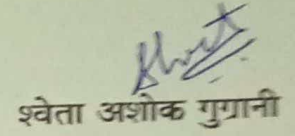 श्वेता अशोक गुग्रानी